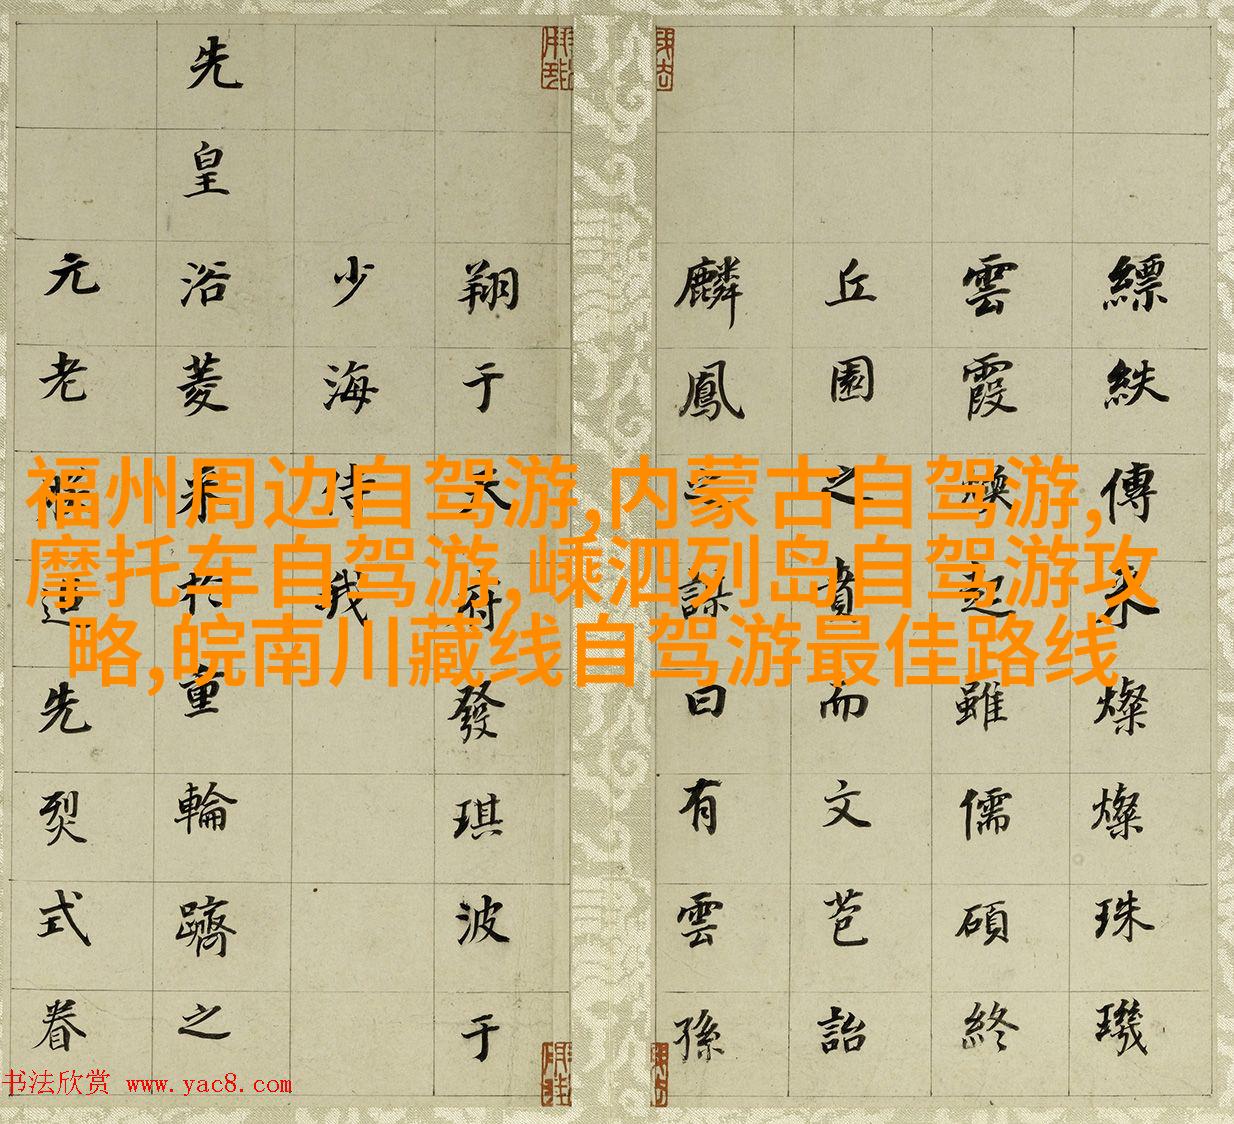 福州周边自驾游,内蒙古自驾游,
摩托车自驾游,嵊泗列岛自驾游攻
略,皖南川藏线自驾游最佳路线
縹紩傳來燦燦珠璣
雲霞煥起雖儒碩終
丘園之賁而文芭詒
麟鳳謀曰有雲孫
翔于天府發琪波于
少海侍我
先皇浴菱采於重輪躋之
元老先烈式眷
书法欣赏 www.yac8.com